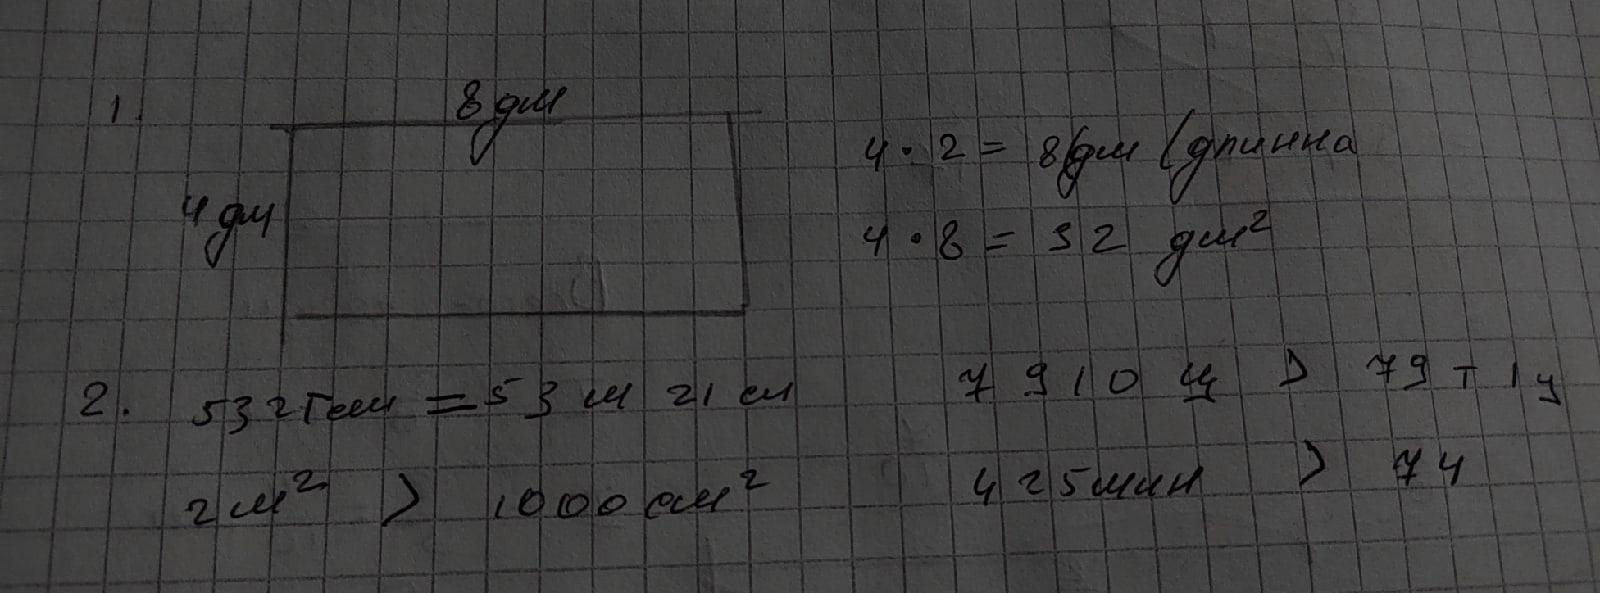 1.
8 дм
4 дм
4 · 2 = 8 дм (длинна
4 · 8 = 32 дм²
2. 5321 см = 53 м 21 см
7910 ц > 79 т 1 ц
2 м² > 1000 см²
425 мин > 7 ч